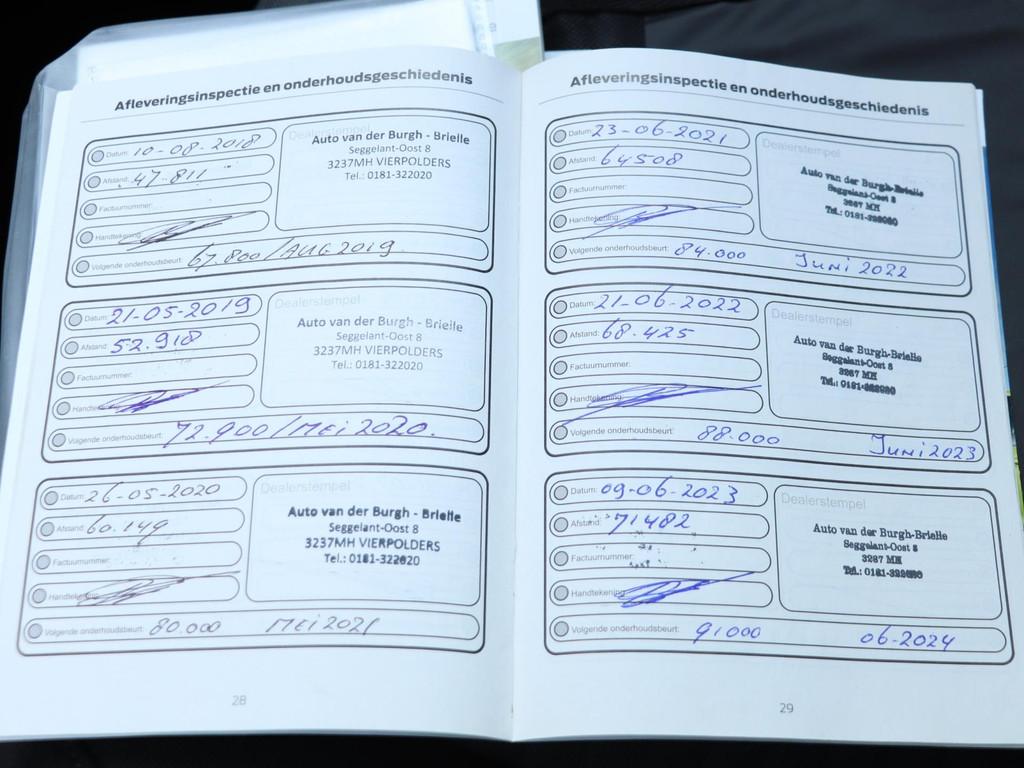 Afleveringsinspectie en onderhoudsgeschiedenis
Datum: 10-08-2018
Afstand: 47.811
Factuurnummer:
Handtekening:
Volgende onderhoudsbeurt: 67.800/AUG 2019
Dealerstempel
Auto van der Burgh - Brielle
Seggelant-Oost 8
3237MH VIERPOLDERS
Tel.: 0181-322020
Datum: 21-05-2019
Afstand: 52.918
Factuurnummer:
Volgende onderhoudsbeurt: 72.900/MEi 2020.
Dealerstempel
Auto van der Burgh - Brielle
Seggelant-Oost 8
3237MH VIERPOLDERS
Tel.: 0181-322020
Datum: 26-05-2020
Afstand: 60.149
Factuurnummer:
Handtekening:
Volgende onderhoudsbeurt: 80.000 MEi 2021
Dealerstempel
Auto van der Burgh - Brielle
Seggelant-Oost 8
3237MH VIERPOLDERS
Tel.: 0181-322020
28
Afleveringsinspectie en onderhoudsgeschiedenis
Datum: 23-06-2021
Afstand: 64508
Factuurnummer:
Handtekening:
Volgende onderhoudsbeurt: 84.000 Juni 2022
Dealerstempel
Auto van der Burgh-Brielle
Seggelant-Oost 8
3237 MH
Tel.: 0181-322020
Datum: 21-06-2022
Afstand: 68.425
Factuurnummer:
Handtekening:
Volgende onderhoudsbeurt: 88.000 Juni 2023
Dealerstempel
Auto van der Burgh-Brielle
Seggelant-Oost 8
3237 MH
Tel.: 0181-322020
Datum: 09-06-2023
Afstand: 71482
Factuurnummer:
Handtekening:
Volgende onderhoudsbeurt: 91000 06-2024
Dealerstempel
Auto van der Burgh-Brielle
Seggelant-Oost 8
3237 MH
Tel.: 0181-322020
29